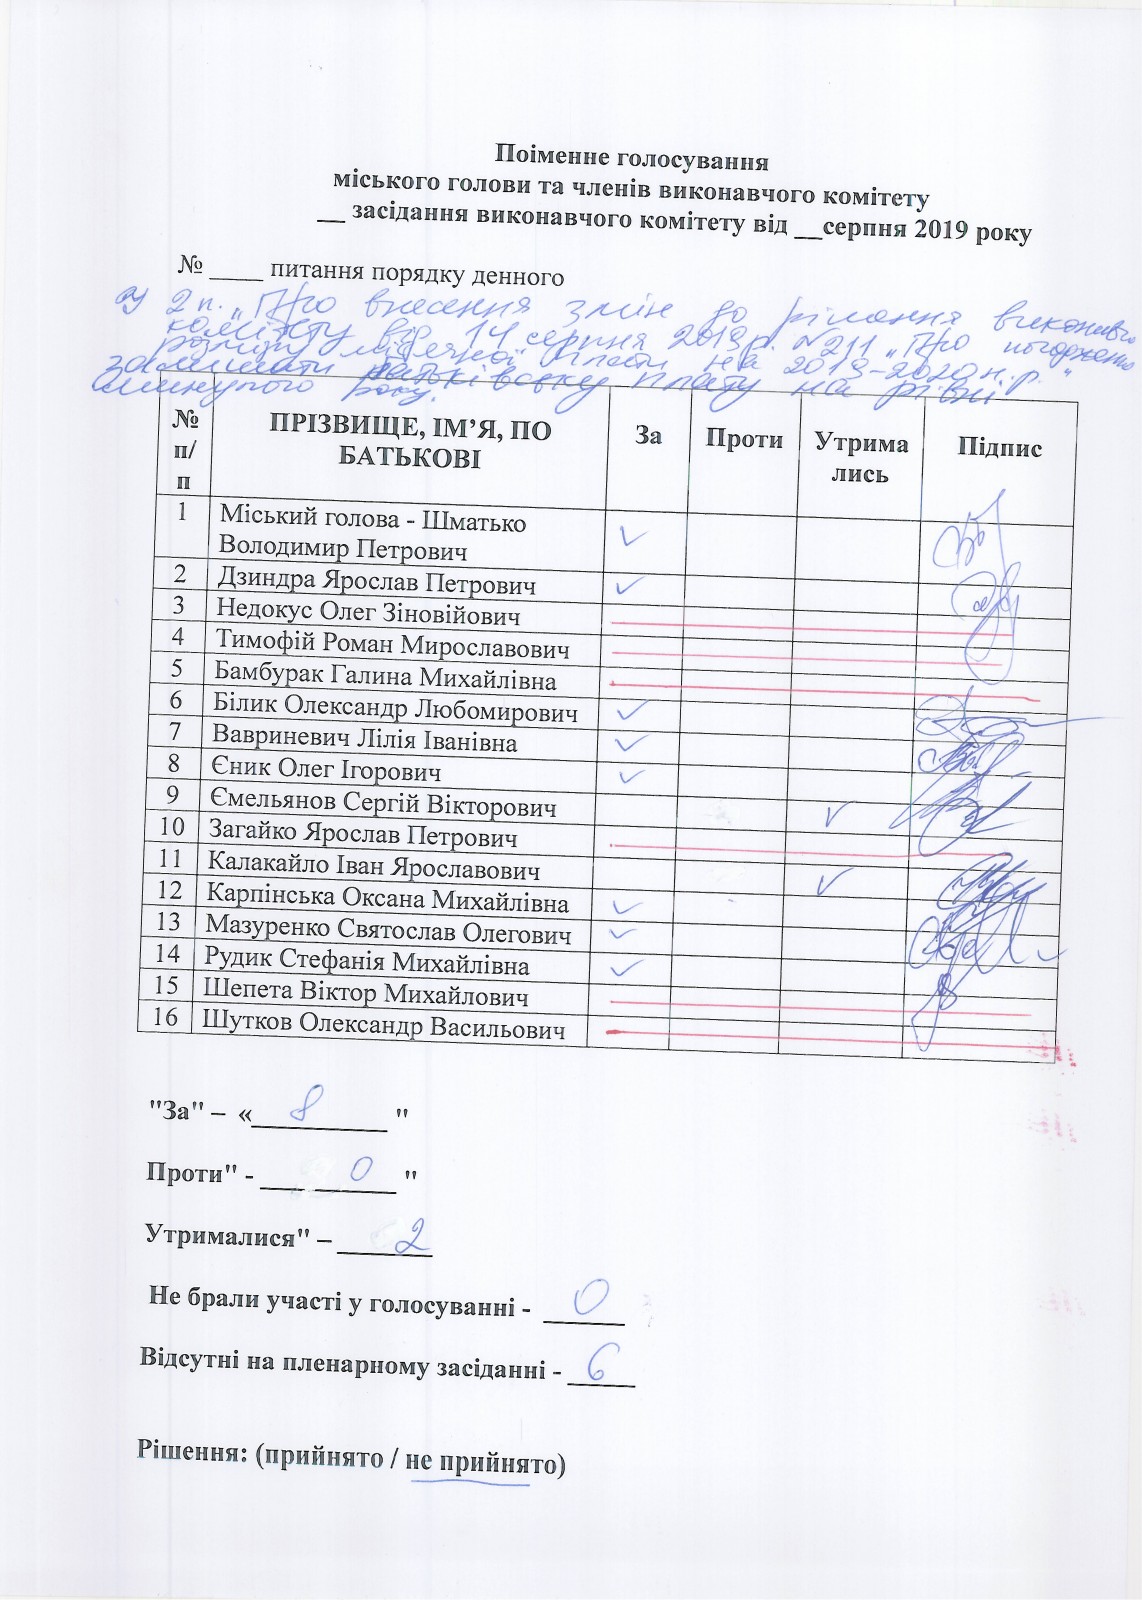 Поіменне голосування
міського голови та членів виконавчого комітету
__ засідання виконавчого комітету від __серпня 2019 року
№ ____ питання порядку денного
2 п. „Про внесення змін до рішення виконавчого
комітету від 14 серпня 2019р. №211 „Про погодження
розміру місячної плати на 2019-2020 н.р."
залишити батьківську плату на рівні
минулого року.
№ п/п ПРІЗВИЩЕ, ІМ'Я, ПО БАТЬКОВІ За Проти Утрима лись Підпис
1 Міський голова - Шматько
Володимир Петрович
2 Дзиндра Ярослав Петрович
3 Недокус Олег Зіновійович
4 Тимофій Роман Мирославович
5 Бамбурак Галина Михайлівна
6 Білик Олександр Любомирович
7 Вавриневич Лілія Іванівна
8 Єник Олег Ігорович
9 Ємельянов Сергій Вікторович
10 Загайко Ярослав Петрович
11 Калакайло Іван Ярославович
12 Карпінська Оксана Михайлівна
13 Мазуренко Святослав Олегович
14 Рудик Стефанія Михайлівна
15 Шепета Віктор Михайлович
16 Шутков Олександр Васильович
"За" – «___8___ "
Проти" - ___ __0__ "
Утрималися" – ____2
Не брали участі у голосуванні - __0__
Відсутні на пленарному засіданні - _6_
Рішення: (прийнято / не прийнято)